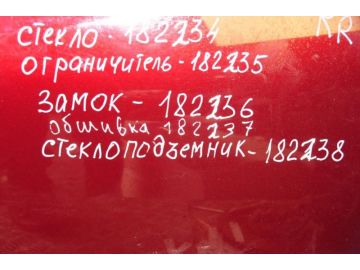 стекло - 182234 RR
ограничитель - 182235
замок - 182236
обшивка 182237
стеклоподъемник - 182238